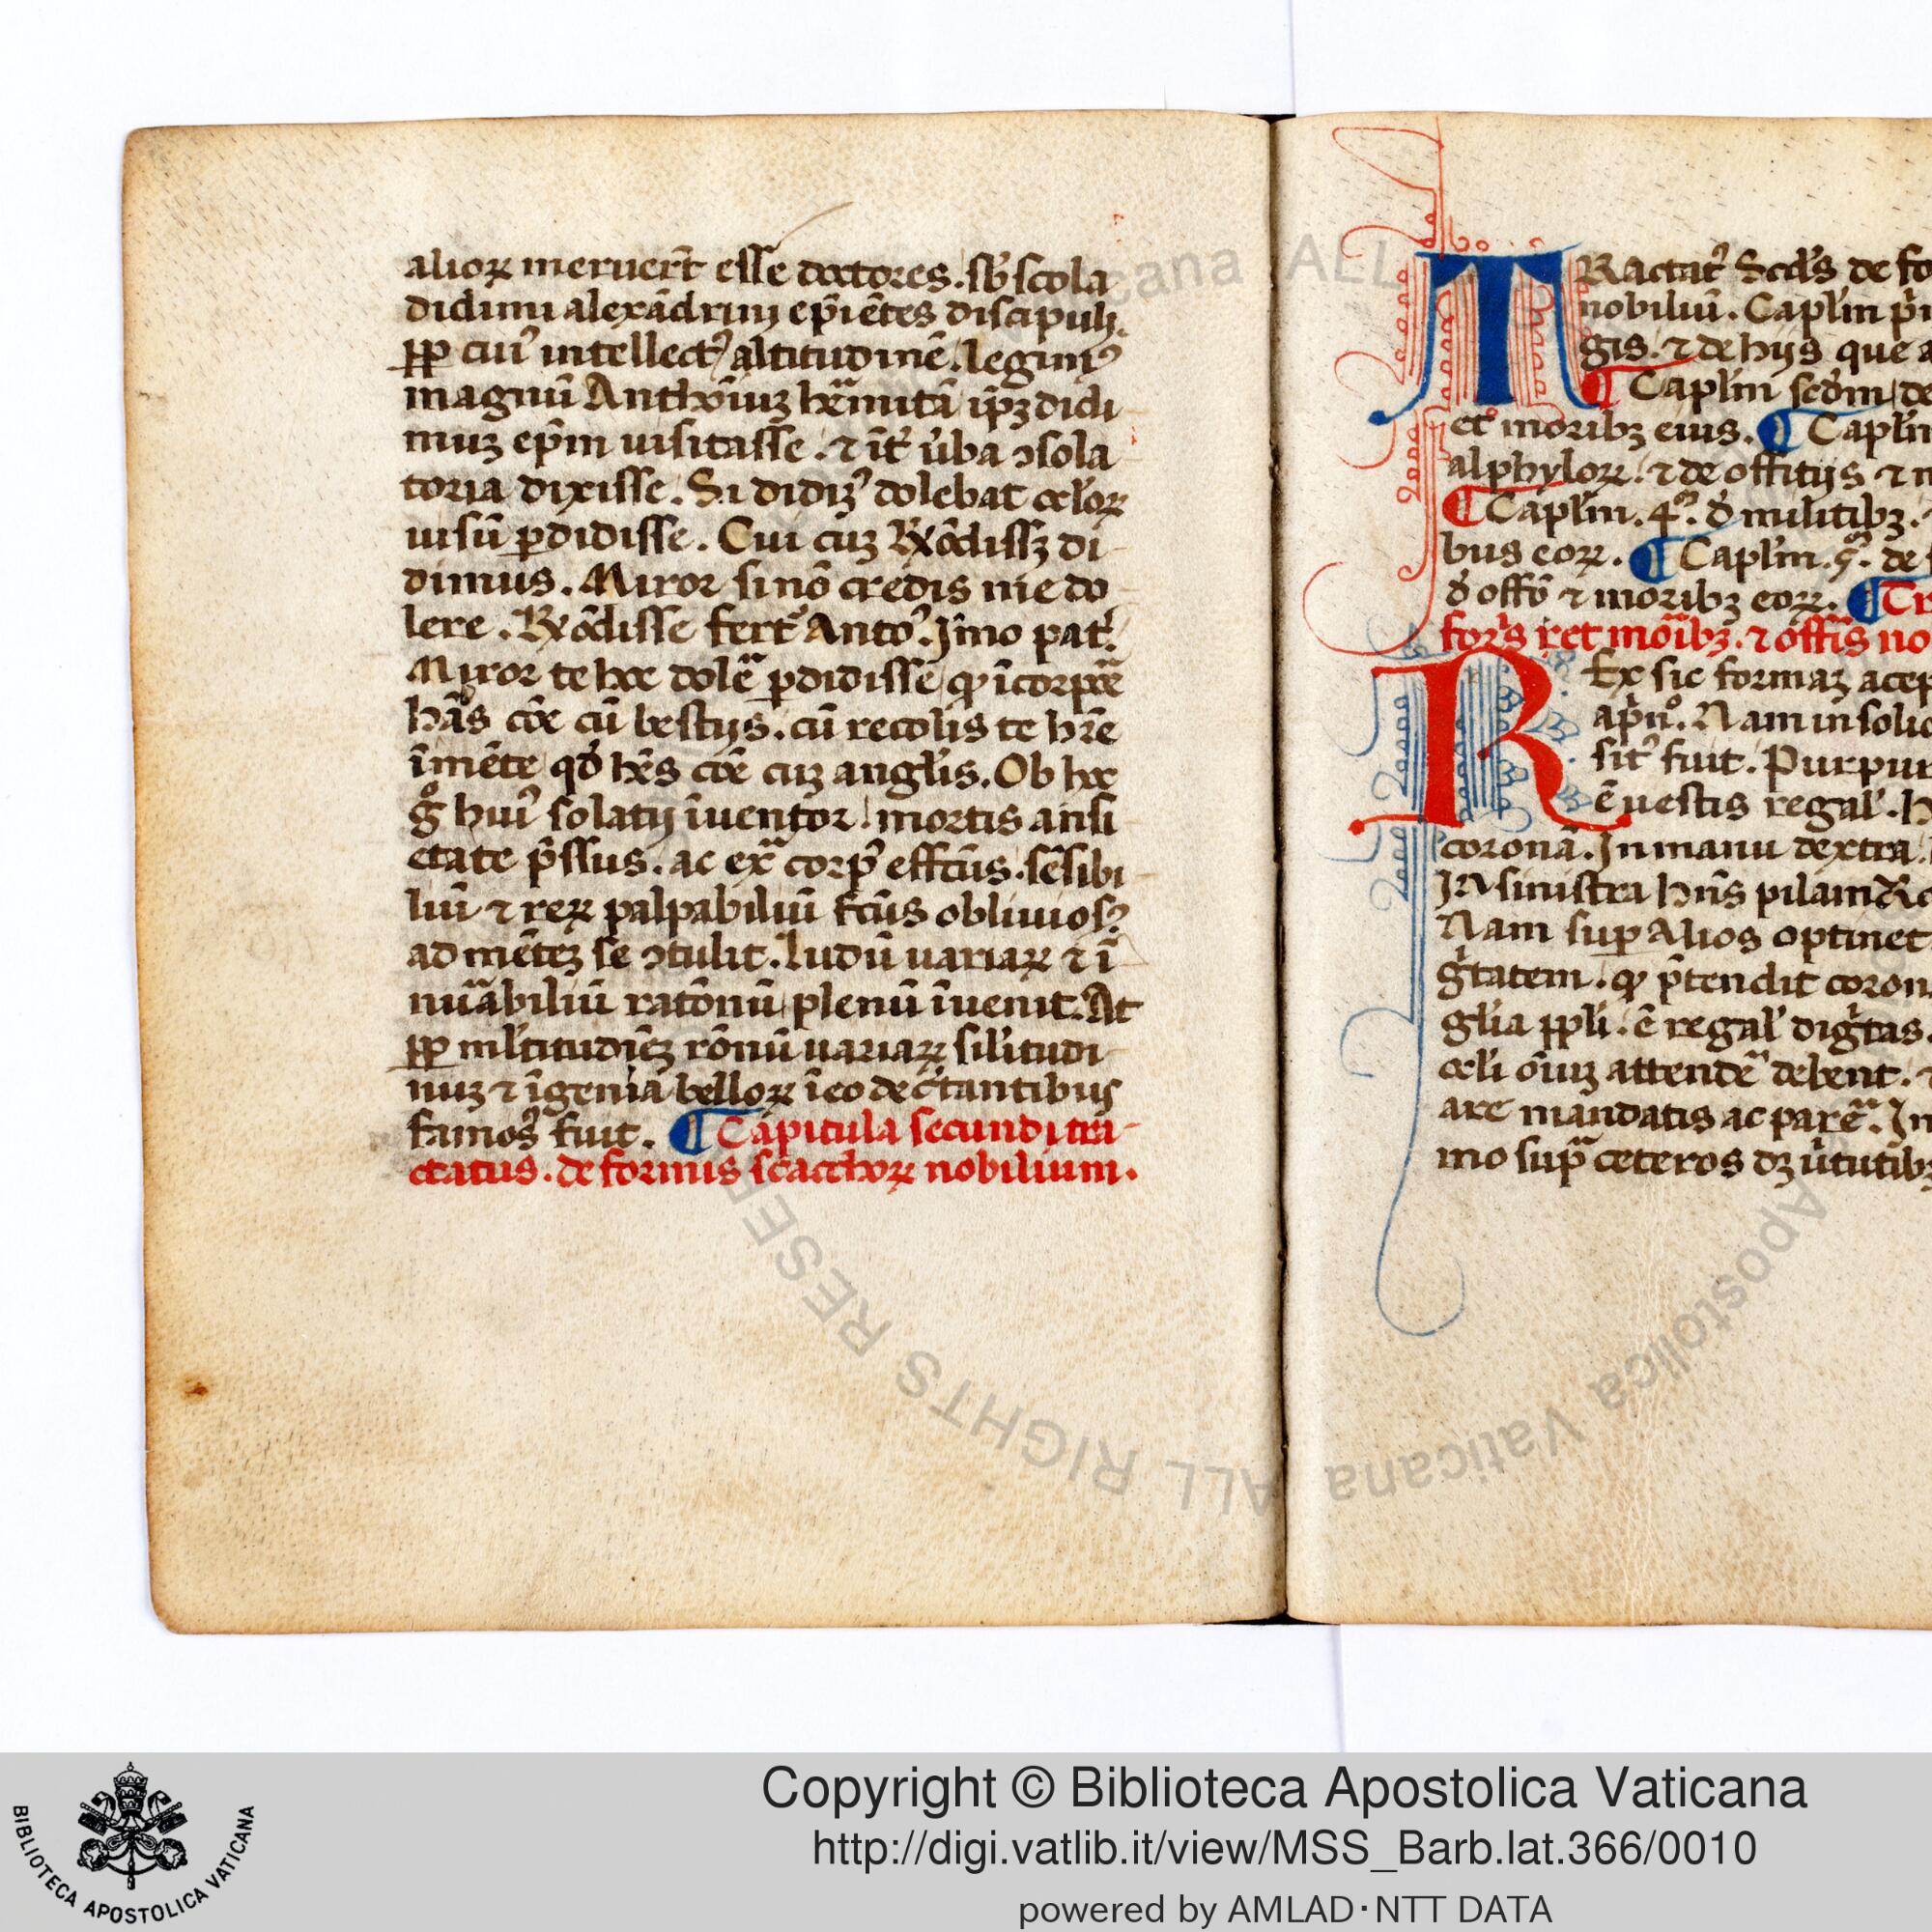 alioꝝ meruer̄t esse doctores. sb̓ scola
didimi alexād̄rini ep̄iētes discipuli.
ꝓp̄ cuiꝰ intellectꝰ altitudinē. legimꝰ
magnū Anthōiuꝫ hēmitā ip̄ꝫ didi
muꝫ ep̄m uisitasse. ⁊ īt̓ u̓ba ↄsola
toria dixisse. Si didiꝫꝰ dolebat oc̓loꝝ
uisū ꝑdidisse. Cui cuꝫ Rn̄disſꝫ di
dimus. Miror si nō credis me do
lere. Rn̄disse fert᷑ Antoꝰ. Jmo pat̓.
Miror te hoc dolē ꝑdidisse ꝙ ī corpoē
hās cōe cū bestijs. cū recolis te hr̄e
ī mēte qd̓ hēs cōe cuꝫ angl̓is. Ob hoc
gͦ huiꝰ solatij īuentor. mortis ansi
etate p̄ssus. ac exͣ corpꝰ effctūs. sēsibi
liū ⁊ reꝝ palpabiliū fctūs obliuiosꝰ
ad mēteꝫ se ↄtulit. ludū uariaꝝ ⁊ ī
nuābiliū ratōnū plenū īuenit. At
ꝓp̄ ml̓titudīeꝫ rōnū uariaꝝ sil̓itudi
nuꝫ ⁊ īgenia belloꝝ ī eo dec̓tantibus
famosꝰ fuit. ¶ Capitula secundi tra
ctatus. de formis scacchoꝝ nobilium.
TRactatꝰ Scd̓s de fo
nobiliū. Capl̓m p̄i
gis. ⁊ de hijs que a
¶ Capl̓m scd̓m de
et moribꝫ eius. ¶ Capl̓m
alphyloꝝ. ⁊ de offitijs ⁊ m
¶ Capl̓m. 4ͫ. d̓ militibꝫ.
bus eoꝝ. ¶ Capl̓m. 5ͫ. de
d̓ offō ⁊ moribꝫ eoꝝ. ¶ Tr
for̄is ret mōibꝫ. ⁊ offis no
REx sic formaꝫ acep
ap̄nͦ. Nam in solio
sitꝰ fuit. Purpur
ē uestis regal̓. h
coronā. Jn manu dextra.
JN sinistra hn̄s pilam
Nam suꝑ Alios optinet
g̓tatem. ꝙ p̄tendit coron
gl̓ia ppl̓i. ē regal̓ dig̓tas.
oc̓li ōiuꝫ attendē debent.
are mandatis ac parē. Jn
mo supͣ ceteros dꝫ u̓tutibꝫ
Copyright © Biblioteca Apostolica Vaticana
http://digi.vatlib.it/view/MSS_Barb.lat.366/0010
powered by AMLAD·NTT DATA
BIBLIOTECA APOSTOLICA VATICANA